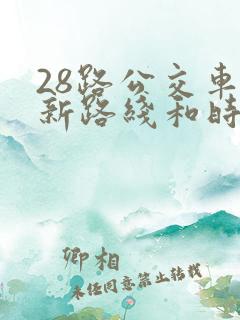 28路公交车
新路线和时
卿相
未经同意禁止转载